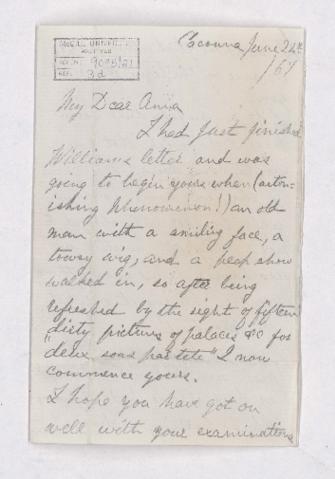 McGILL UNIVERSITY
ARCHIVES
ACC. NO.
REF.
Cacouna June 24th
/67
My Dear Anna
I had just finished
Williams letter and was
going to begin yours when (aston-
ishing phenomenon!) an old
man with a smiling face, a
towsy wig, and a peep show
walked in, so after being
refreshed by the sight of fifteen
"dirty pictures of palaces &c for
deux sous par tete" I now
commence yours.
I hope you have got on
well with your examinations